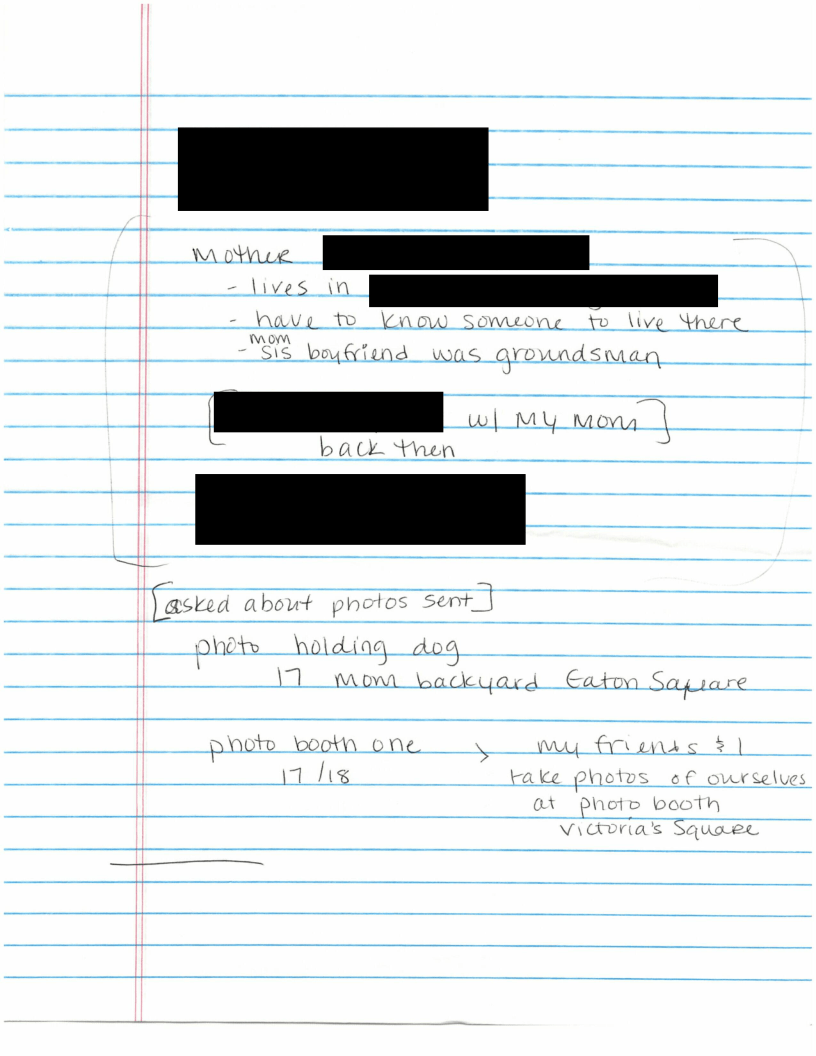 Mother
- lives in
- have to know someone to live there
mom
- sis boyfriend was groundsman
[ w/ My Mom ]
back then
[asked about photos sent]
photo holding dog
17 mom backyard Eaton Sqaure
photo booth one > my friends & I
17/18 take photos of ourselves
at photo booth
Victoria's Square